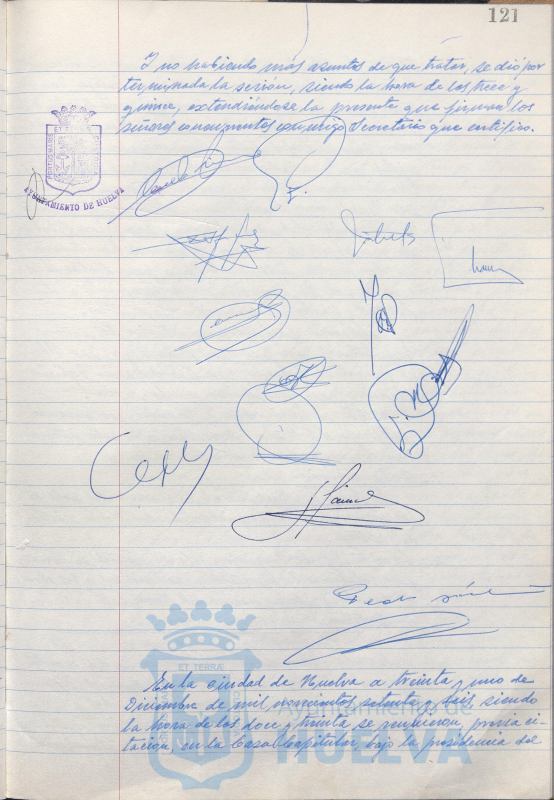 121
Y no habiendo más asuntos de que tratar, se dió por
terminada la sesión, siendo la hora de las trece y
quince, extendiéndose la presente que firman los
señores concurrentes conmigo Secretario que certifico.
PORTUS MARIS ET TERRAE CUSTODIA
AYUNTAMIENTO DE HUELVA
En la ciudad de Huelva a treinta y uno de
Diciembre de mil novecientos setenta y seis siendo
la hora de las doce y treinta se reunieron, previa ci-
tación, en la Casa Capitular, bajo la presidencia del
ET TERRAE
Ayuntamiento de
HUELVA